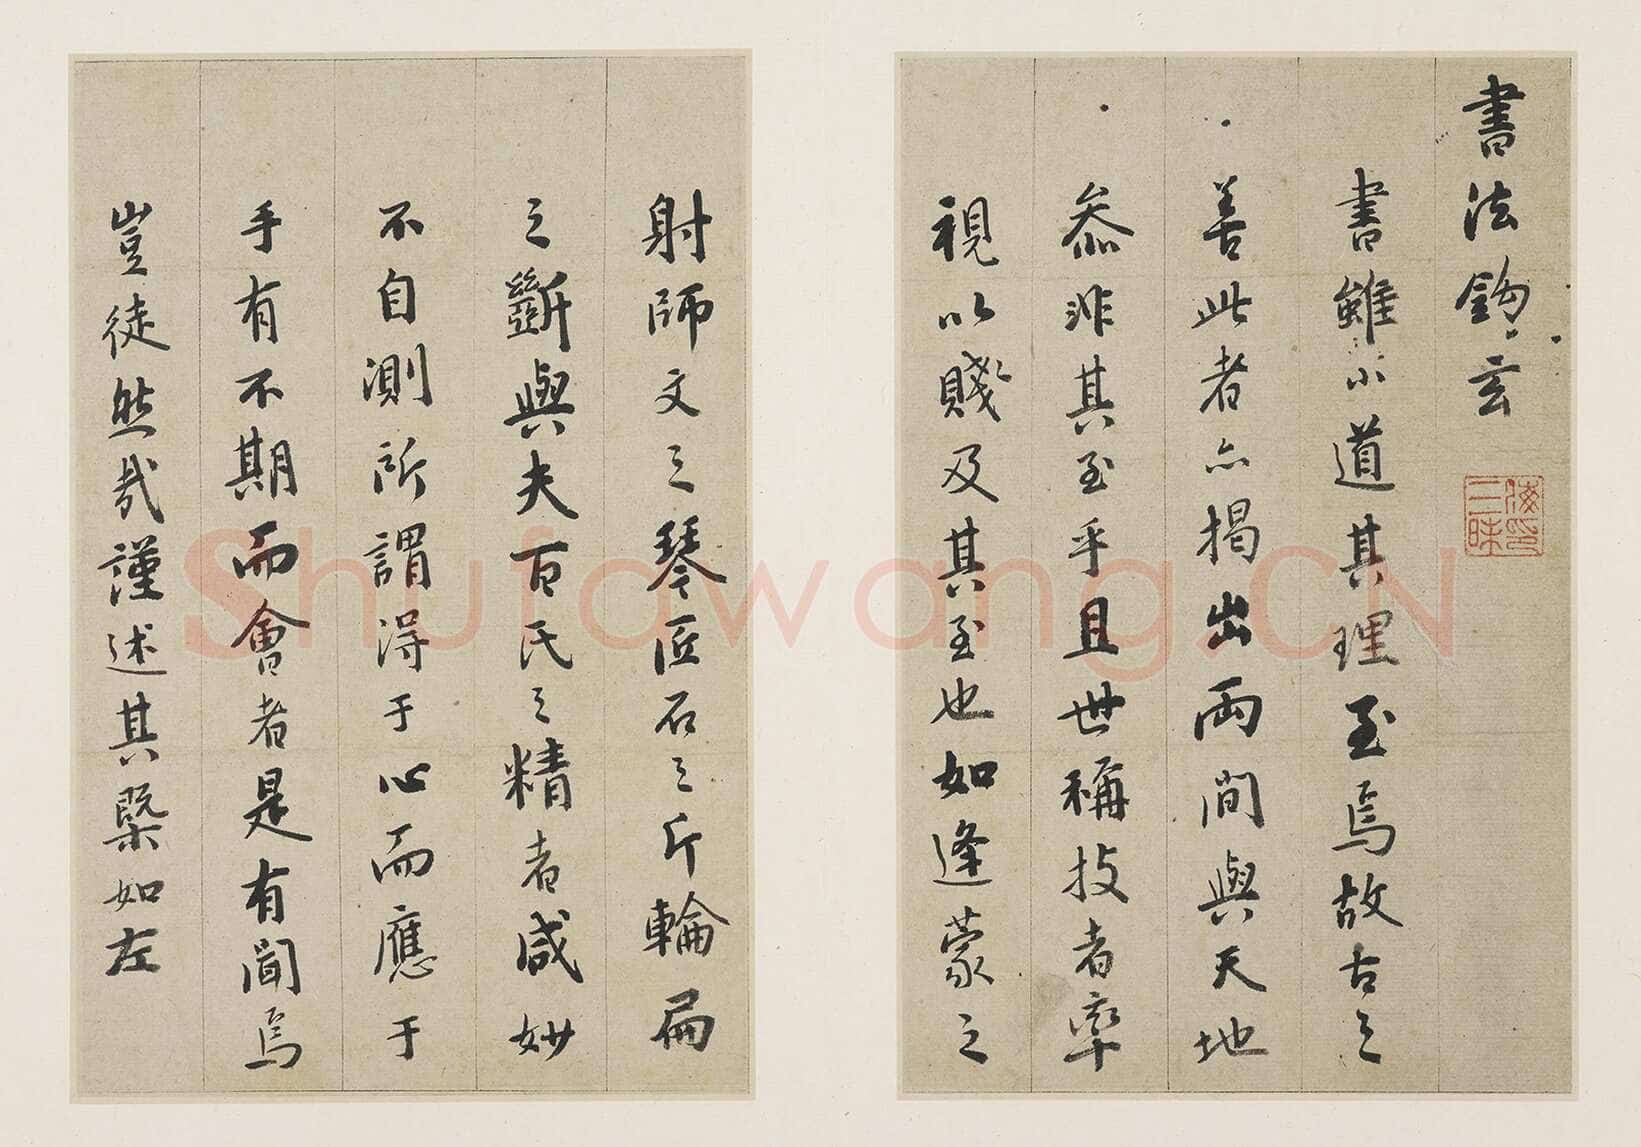 書法鈎玄
書雖小道其理至焉故古之
善此者亦揭出兩間與天地
叅非其至乎且世稱技者率
視以賤及其至也如逢蒙之
射師文之琴匠石之斤輪扁
之斲與夫百氏之精者咸妙
不自測所謂得于心而應于
手有不期而會者是有聞焉
豈徒然哉謹述其槩如左
海印三昧
Shufawang.CN